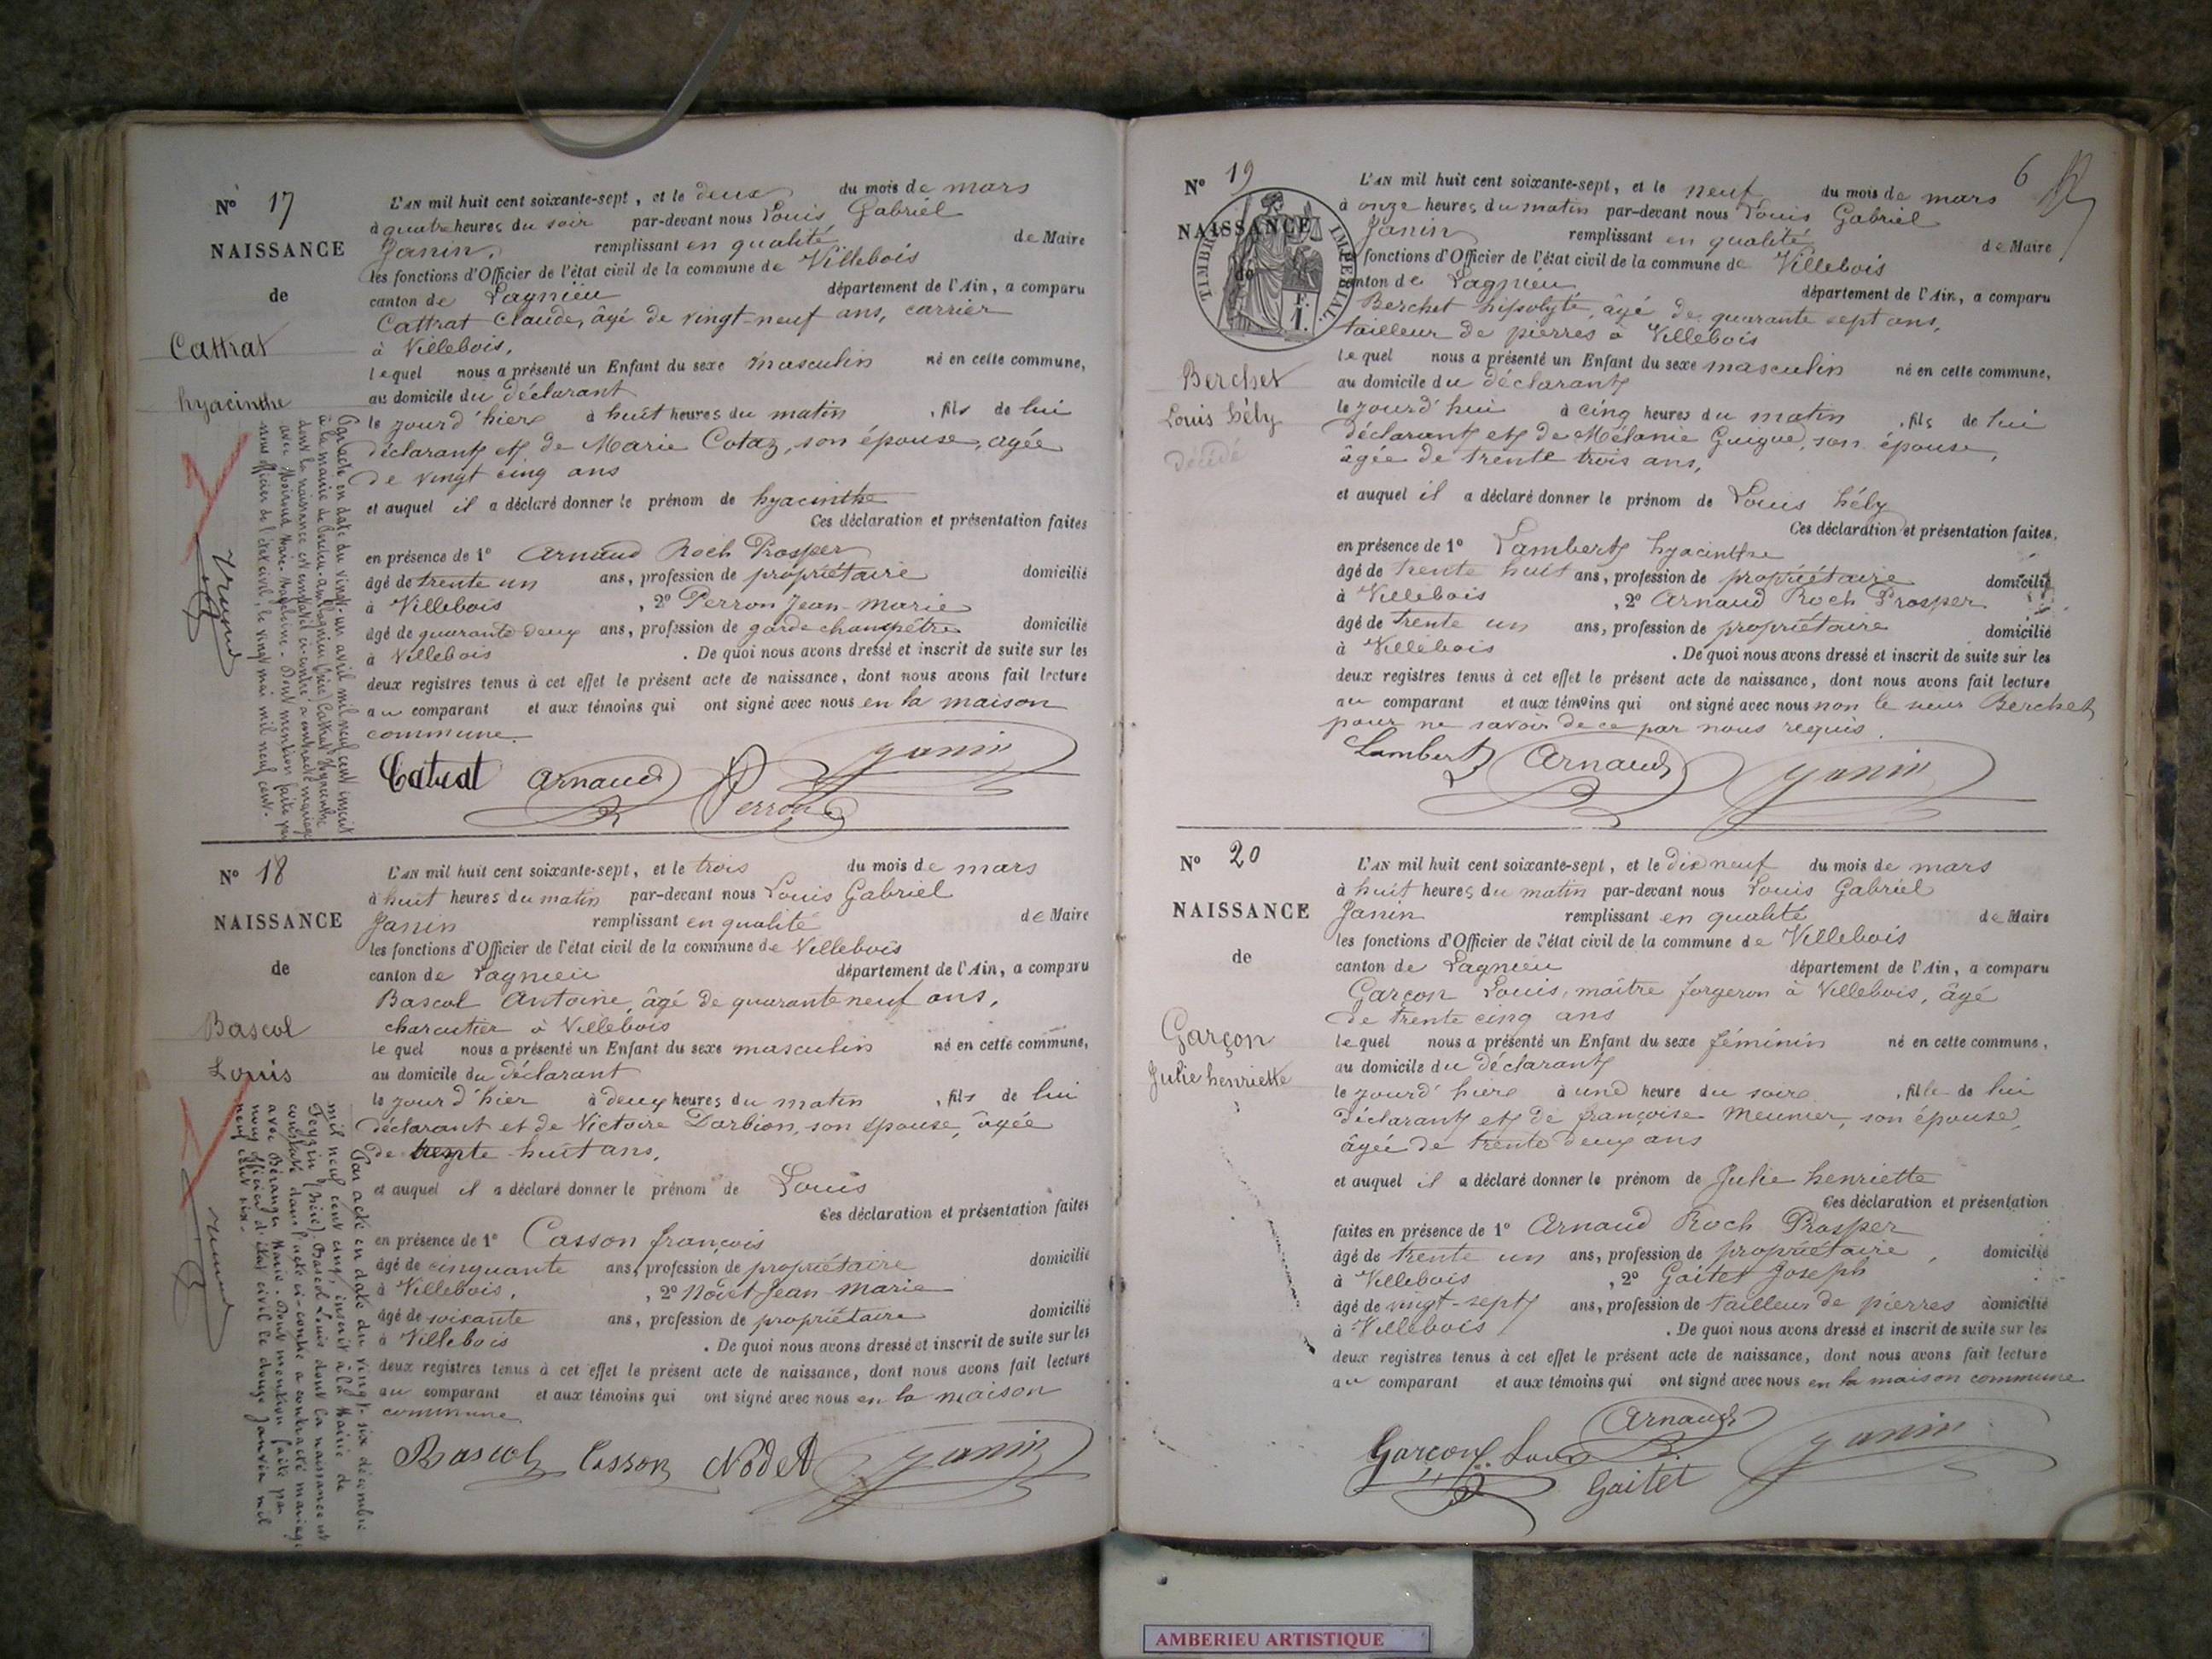 N° 17
NAISSANCE
de
Cattrat
hyacinthe
L'AN mil huit cent soixante-sept, et le deux du mois de mars
à quatre heures du soir par-devant nous Louis Gabriel
Janin, remplissant en qualité de Maire
les fonctions d'Officier de l'état civil de la commune de Villebois
canton de Lagnieu département de l'Ain, a comparu
Cattrat Claude, âgé de vingt-neuf ans, carrier
à Villebois,
lequel nous a présenté un Enfant du sexe masculin né en cette commune,
au domicile du déclarant
le jourd'hier à huit heures du matin, fils de lui
déclarant et de Marie Cotaz, son épouse, agée
de vingt cinq ans
et auquel il a déclaré donner le prénom de hyacinthe
Ces déclaration et présentation faites
en présence de 1° Arnaud Roch Prosper
âgé de trente un ans, profession de propriétaire domicilié
à Villebois, 2° Perron Jean-Marie
âgé de quarante-deux ans, profession de garde champêtre domicilié
à Villebois. De quoi nous avons dressé et inscrit de suite sur les
deux registres tenus à cet effet le présent acte de naissance, dont nous avons fait lecture
au comparant et aux témoins qui ont signé avec nous en la maison
commune.
Catrat Arnaud Perron Janin
Par acte en date du vingt-un avril mil neuf cent inscrit
à la mairie de Cattrat Hyacinthe
dont la naissance est constatée ci-contre a contracté mariage
avec Marie. Dont mention faite par
nous officier de l'état civil, le vingt mai mil neuf cent.
N° 18
NAISSANCE
de
Bascol
Louis
L'AN mil huit cent soixante-sept, et le trois du mois de mars
à huit heures du matin par-devant nous Louis Gabriel
Janin remplissant en qualité de Maire
les fonctions d'Officier de l'état civil de la commune de Villebois
canton de Lagnieu département de l'Ain, a comparu
Bascol Antoine, âgé de quarante neuf ans,
charcutier à Villebois
lequel nous a présenté un Enfant du sexe masculin né en cette commune,
au domicile du déclarant
le jourd'hier à deux heures du matin, fils de lui
déclarant et de Victoire Darbion, son épouse, âgée
de trente-huit ans,
et auquel il a déclaré donner le prénom de Louis
Ces déclaration et présentation faites
en présence de 1° Casson françois
âgé de cinquante ans, profession de propriétaire domicilié
à Villebois, 2° Nodet Jean-Marie
âgé de soixante ans, profession de propriétaire domicilié
à Villebois. De quoi nous avons dressé et inscrit de suite sur les
deux registres tenus à cet effet le présent acte de naissance, dont nous avons fait lecture
au comparant et aux témoins qui ont signé avec nous en la maison
commune
Bascol Casson Nodet Janin
Par acte en date du vingt-six décembre
mil neuf cent cinq, inscrit à la Mairie de
Feyzin (Isère) Bascol Louis dont la naissance est
constatée dans l'acte ci-contre a contracté mariage
avec Béranger Marie. Dont mention faite par
nous officier de l'état civil le douze Janvier mil
neuf cent six.
N° 19
NAISSANCE
de
TIMBRE IMPERIAL
F.
1.
Berchet
Louis hély
décédé
6
L'AN mil huit cent soixante-sept, et le neuf du mois de mars
à onze heures du matin par-devant nous Louis Gabriel
Janin remplissant en qualité de Maire
fonctions d'Officier de l'état civil de la commune de Villebois
canton de Lagnieu département de l'Ain, a comparu
Berchet hipolyte, âgé de quarante sept ans,
tailleur de pierres à Villebois
lequel nous a présenté un Enfant du sexe masculin né en cette commune,
au domicile du déclarant
le jourd'hui à cinq heures du matin, fils de lui
déclarant et de Mélanie Guigue, son épouse,
âgée de trente trois ans,
et auquel il a déclaré donner le prénom de Louis hély
Ces déclaration et présentation faites,
en présence de 1° Lambert hyacinthe
âgé de trente huit ans, profession de propriétaire domicilié
à Villebois, 2° Arnaud Roch Prosper
âgé de trente un ans, profession de propriétaire domicilié
à Villebois. De quoi nous avons dressé et inscrit de suite sur les
deux registres tenus à cet effet le présent acte de naissance, dont nous avons fait lecture
au comparant et aux témoins qui ont signé avec nous non le sieur Berchet
pour ne savoir de ce par nous requis.
Lambert Arnaud Janin
N° 20
NAISSANCE
de
Garçon
Julie henriette
L'AN mil huit cent soixante-sept, et le dix neuf du mois de mars
à huit heures du matin par-devant nous Louis Gabriel
Janin remplissant en qualité de Maire
les fonctions d'Officier de l'état civil de la commune de Villebois
canton de Lagnieu département de l'Ain, a comparu
Garçon Louis, maître forgeron à Villebois, âgé
de trente cinq ans
lequel nous a présenté un Enfant du sexe féminin né en cette commune,
au domicile du déclarant
le jourd'hiere à une heure du soire, fille de lui
déclarant et de françoise Meunier, son épouse,
âgée de trente deux ans
et auquel il a déclaré donner le prénom de Julie henriette
Ces déclaration et présentation
faites en présence de 1° Arnaud Roch Prosper
âgé de trente un ans, profession de propriétaire, domicilié
à Villebois, 2° Gaitet Joseph
âgé de vingt-sept ans, profession de tailleur de pierres domicilié
à Villebois. De quoi nous avons dressé et inscrit de suite sur les
deux registres tenus à cet effet le présent acte de naissance, dont nous avons fait lecture
au comparant et aux témoins qui ont signé avec nous en la maison commune
Arnaud
Garçon Louis Gaitet Janin
AMBERIEU ARTISTIQUE